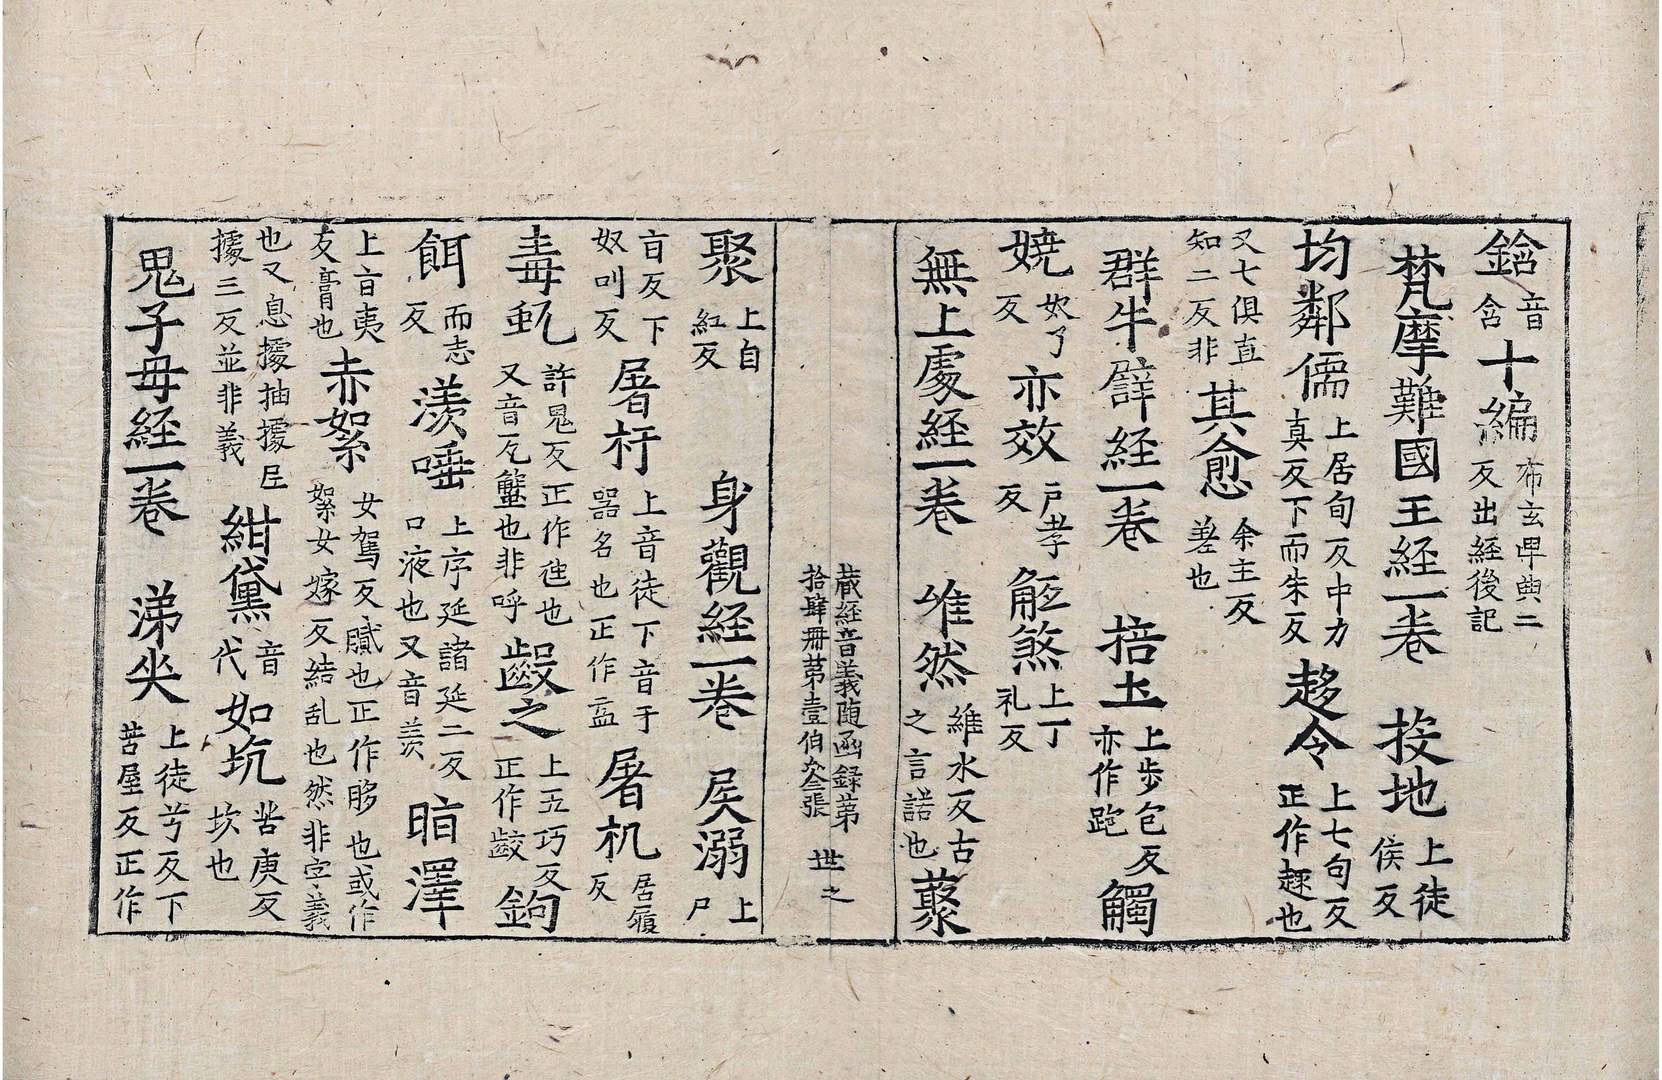 鋡音含十編布玄卑典二反出經後記
梵摩難國王經一卷 㧞地上徒侯反
均鄰儒上居旬反中力真反下而朱反趍令上七句反正作趣也
又七俱直知二反非其愈余主反差也
群牛譬經一卷 掊土上步包反亦作跑觸
嬈奴了反亦效户孝反觝煞上丁礼反
無上處經一卷 唯然維水反古之言諾也藂
藏經音義随函録第拾肆冊第壹伯叁張 世之
聚上自紅反 身觀經一卷 㞙溺上尸
盲反下奴叫反屠杅上音徒下音于器名也正作盂屠机居履反
毒虬許鬼反正作虺也又音瓦蠥也非呼齩之上五巧反正作齩鉤
餌而志反羡唾上序延諸延二反口液也又音羡㫪澤
上盲夷反膏也赤絮女駕反膩也正作䏧也或作絮女嫁反結乱也然非字義
也又息據抽據𫝑據三反並非義紺黛音代如坑苦庚反坎也
鬼子母經一卷 涕哭上徒兮反下苦屋反正作